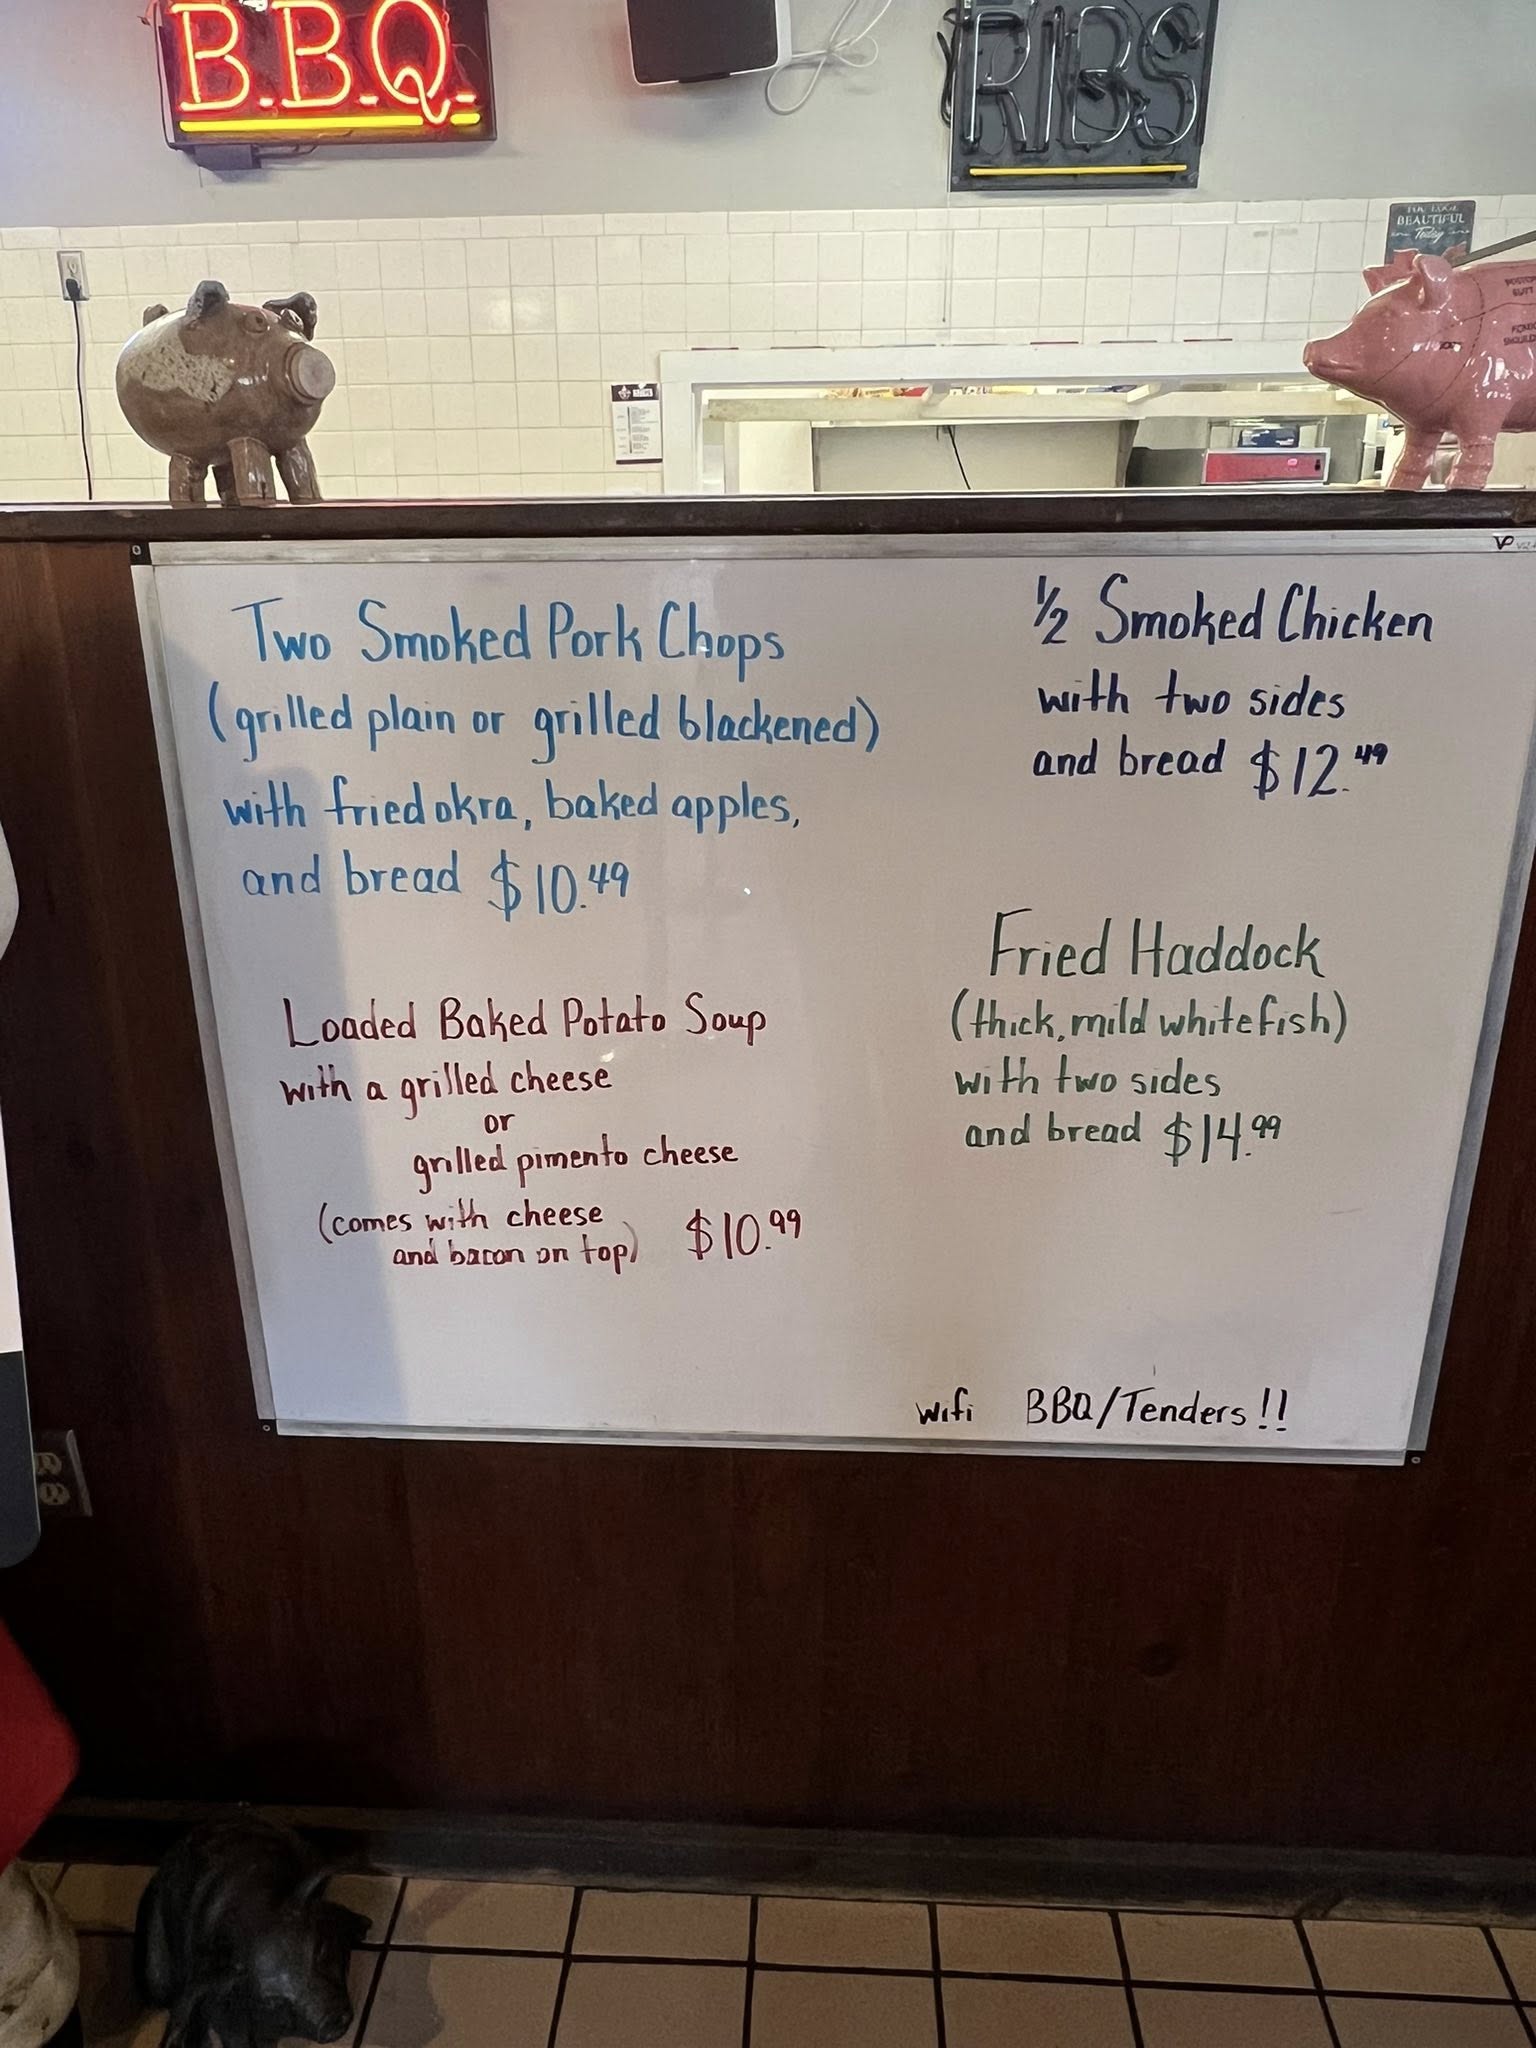 B.B.Q.
RIBS
BEAUTIFUL
Today
Two Smoked Pork Chops
(grilled plain or grilled blackened)
with fried okra, baked apples,
and bread $10.49
Loaded Baked Potato Soup
with a grilled cheese
or
grilled pimento cheese
(comes with cheese
and bacon on top) $10.99
1/2 Smoked Chicken
with two sides
and bread $12.49
Fried Haddock
(thick, mild white fish)
with two sides
and bread $14.99
wifi BBQ/Tenders!!